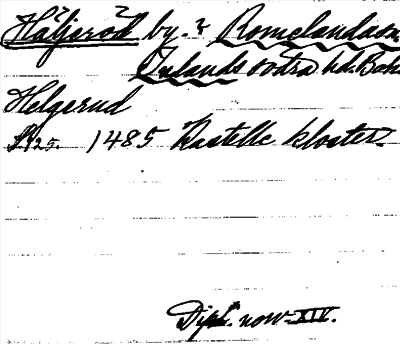 Häljeröd by. i Romelandason
Inlands södra hd. Boh
Helgerud
S. 125. 1485 Kastelle kloster.
Dipl. norv. XIV.